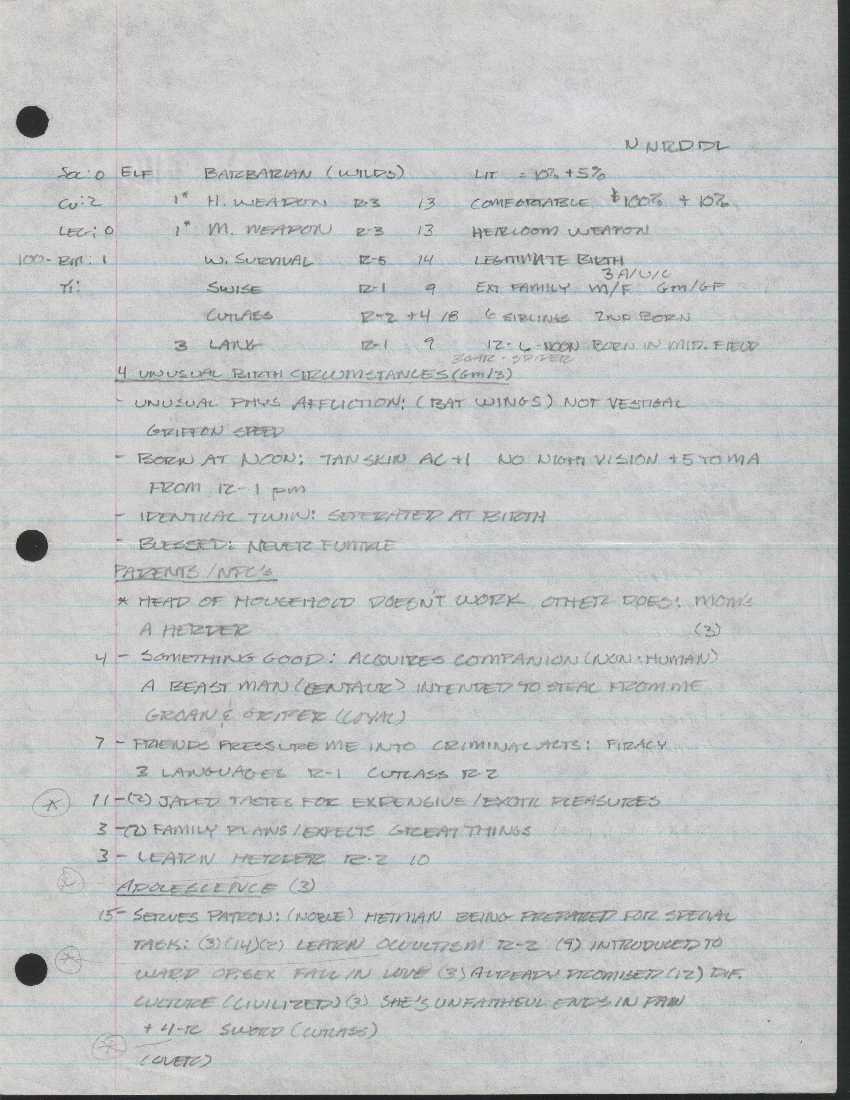 N NRDDL
SOC: 0 ELF BARBARIAN (WILDS) LIT = 10% + 5%
CU: 2 1* H. WEAPON R-3 13 COMFORTABLE $100% + 10%
LEG: 0 1* M. WEAPON R-3 13 HEIRLOOM WEAPON
100- BM: 1 W. SURVIVAL R-5 14 LEGITIMATE BIRTH
3 A/U/C
TI: SWISE R-1 9 EXT FAMILY M/F GM/GF
CUTLASS R-2 +4 18 6 SIBLINGS 2ND BORN
3 LANG R-1 9 12-6 -NOON BORN IN MID. FIELD
SPIDER
4 UNUSUAL BIRTH CIRCUMSTANCES (GM/3)
- UNUSUAL PHYS AFFLICTION: (BAT WINGS) NOT VESTIGAL
GRIFFON SPEED
- BORN AT NOON: TAN SKIN AC +1 NO NIGHT VISION +5 TO MA
FROM 12-1 pm
- IDENTICAL TWIN: SEPERATED AT BIRTH
- BLESSED: NEVER FUMBLE
PARENTS/NPC'S
* HEAD OF HOUSEHOLD DOESN'T WORK OTHER DOES: MOM'S
A HERDER (3)
4 - SOMETHING GOOD: ACQUIRES COMPANION (NON-HUMAN)
A BEAST MAN (CENTAUR) INTENDED TO STEAL FROM ME
GROAN & GRIPER (LOYAL)
7 - FRIENDS PRESSURE ME INTO CRIMINAL ACTS: PIRACY
3 LANGUAGES R-1 CUTLASS R-2
* 11 -(2) JADED TASTES FOR EXPENSIVE/EXOTIC PLEASURES
3 -(2) FAMILY PLANS/EXPECTS GREAT THINGS
3 - LEARN HERDER R-2 10
ADOLESCENCE (3)
15 - SERVES PATRON: (NOBLE) HETMAN BEING PREPARED FOR SPECIAL
TASK: (3)(14)(2) LEARN OCCULTISM R-2 (9) INTRODUCED TO
* WARD OP. SEX FALL IN LOVE (3) ALREADY PROMISED (12) DIF.
CULTURE (CIVILIZED) (3) SHE'S UNFAITHFUL ENDS IN PAIN
+ 4-R SWORD (CUTLASS)
* (OVER)